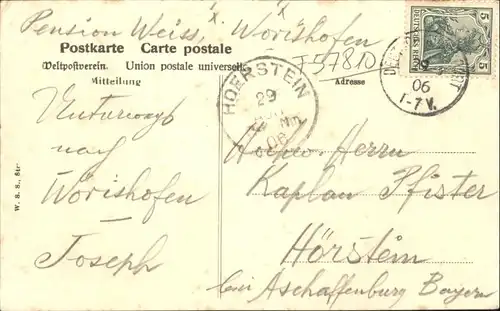 Pension Weiss, Worishofen
Postkarte Carte postale
Weltpostverein. Union postale universelle
I 57810
Mitteilung
Adresse
5 DEUTSCHES REICH 5
HOERSTEIN
29
06
06
1-7 V.
Unterwegs
nach
Wörishofen
Joseph
Herrn
Kaplan Pfister
Hörstein
bei Aschaffenburg Bayern
W. S. S., Str